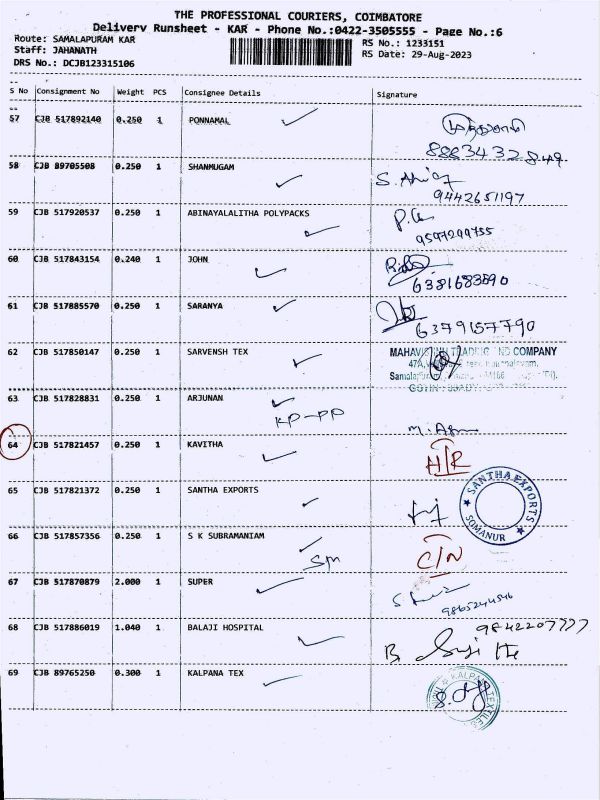 THE PROFESSIONAL COURIERS, COIMBATORE
Delivery Runsheet - KAR - Phone No.:0422-3505555 - Page No.:6
Route: SAMALAPURAM KAR
RS No.: 1233151
Staff: JAHANATH
RS Date: 29-Aug-2023
DRS No.: DCJB123315106
S No Consignment No Weight PCS Consignee Details Signature
57 CJB 517892140 0.250 1 PONNAMAL
58 CJB 89705508 0.250 1 SHANMUGAM
9442651197
59 CJB 517920537 0.250 1 ABINAYALALITHA POLYPACKS
60 CJB 517843154 0.240 1 JOHN
61 CJB 517885570 0.250 1 SARANYA
6379157790
62 CJB 517850147 0.250 1 SARVENSH TEX
63 CJB 517828831 0.250 1 ARJUNAN
KP-PP
64 CJB 517821457 0.250 1 KAVITHA
H/R
65 CJB 517821372 0.250 1 SANTHA EXPORTS
SANTHA EXPORTS
SOMANUR
66 CJB 517857356 0.250 1 S K SUBRAMANIAM
Sm
C/N
67 CJB 517870879 2.000 1 SUPER
68 CJB 517886019 1.040 1 BALAJI HOSPITAL
69 CJB 89765250 0.300 1 KALPANA TEX